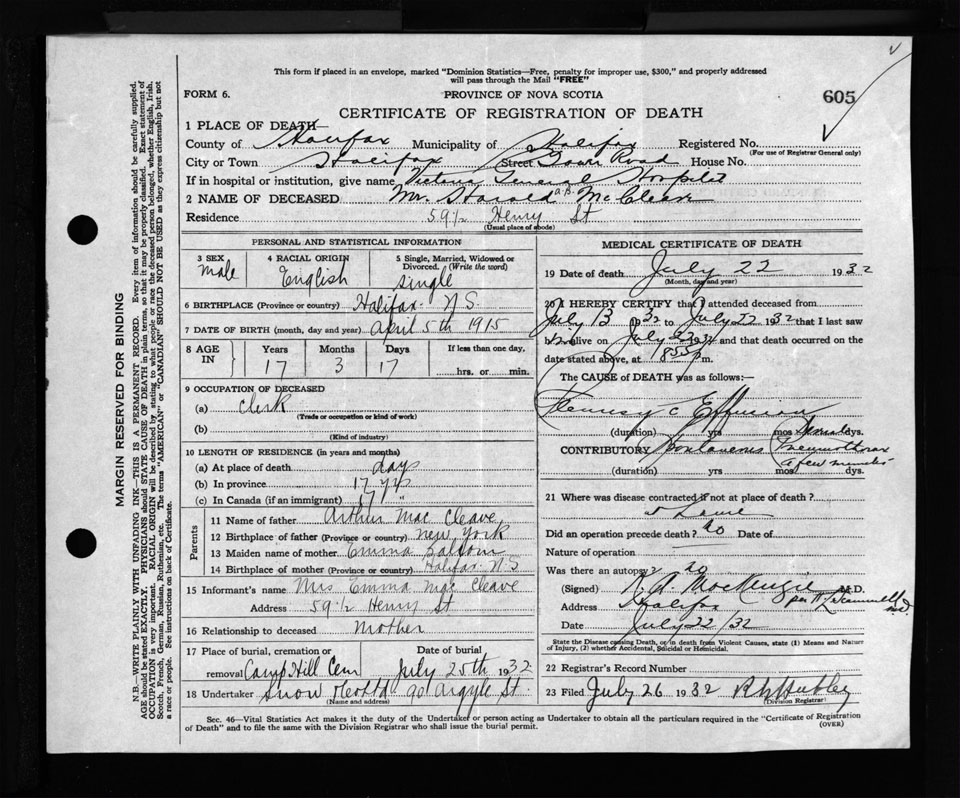 This form if placed in an envelope, marked "Dominion Statistics—Free, penalty for improper use, $300," and properly addressed
will pass through the Mail "FREE"
FORM 6.
PROVINCE OF NOVA SCOTIA
605
CERTIFICATE OF REGISTRATION OF DEATH
1 PLACE OF DEATH
County of Halifax Municipality of Halifax Registered No.
(For use of Registrar General only)
City or Town Halifax Street Tower Road House No.
If in hospital or institution, give name Victoria General Hospital
2 NAME OF DECEASED Mr. Harold A.B. McCleave
Residence 59½ Henry St
(Usual place of abode)
PERSONAL AND STATISTICAL INFORMATION
3 SEX Male
4 RACIAL ORIGIN English
5 Single, Married, Widowed or Divorced. (Write the word) single
6 BIRTHPLACE (Province or country) Halifax N.S.
7 DATE OF BIRTH (month, day and year) April 5th 1915
8 AGE IN Years 17 Months 3 Days 17 If less than one day, hrs. or min.
9 OCCUPATION OF DECEASED
(a) Clerk
(Trade or occupation or kind of work)
(b)
(Kind of industry)
10 LENGTH OF RESIDENCE (in years and months)
(a) At place of death days
(b) In province 17 yrs
(c) In Canada (if an immigrant) 17 "
Parents
11 Name of father Arthur Mac Cleave
12 Birthplace of father (Province or country) New York
13 Maiden name of mother Emma
14 Birthplace of mother (Province or country) Halifax N.S
15 Informant's name Mrs Emma Mac Cleave
Address 59½ Henry St
16 Relationship to deceased Mother
17 Place of burial, cremation or removal Camp Hill Cem
Date of burial July 25th 1932
18 Undertaker Snow 90 Argyle St.
(Name and address)
MEDICAL CERTIFICATE OF DEATH
19 Date of death July 22 1932
(Month, day and year)
20 I HEREBY CERTIFY that I attended deceased from
July 13 1932 to July 22 1932 that I last saw
h alive on July 22 1932 and that death occurred on the
date stated above, at m.
The CAUSE of DEATH was as follows:—
Pleurisy c Effusion
(duration) yrs mos dys.
CONTRIBUTORY Spontaneous Pneumothorax
(duration) yrs. a few minutes mos dys.
21 Where was disease contracted if not at place of death?
Did an operation precede death? No Date of
Nature of operation
Was there an autopsy? no
(Signed) K A MacKenzie M.D.
Address Halifax
Date July 22/32
State the Disease causing Death, or in death from Violent Causes, state (1) Means and Nature
of Injury, (2) whether Accidental, Suicidal or Homicidal.
22 Registrar's Record Number
23 Filed July 26 1932
(Division Registrar)
Sec. 46—Vital Statistics Act makes it the duty of the Undertaker or person acting as Undertaker to obtain all the particulars required in the "Certificate of Registration
of Death" and to file the same with the Division Registrar who shall issue the burial permit.
(OVER)
MARGIN RESERVED FOR BINDING
N.B.—WRITE PLAINLY WITH UNFADING INK—THIS IS A PERMANENT RECORD. Every item of information should be carefully supplied.
AGE should be stated EXACTLY. PHYSICIANS should STATE CAUSE OF DEATH in plain terms, so that it may be properly classified. Exact statement of
OCCUPATION is very important. RACIAL ORIGIN will be described by stating to what people or race the deceased person belonged, whether English, Irish,
Scotch, French, German, Russian, Ruthenian, etc. The terms "AMERICAN" or "CANADIAN" SHOULD NOT BE USED as they express citizenship but not
a race or people. See instructions on back of Certificate.